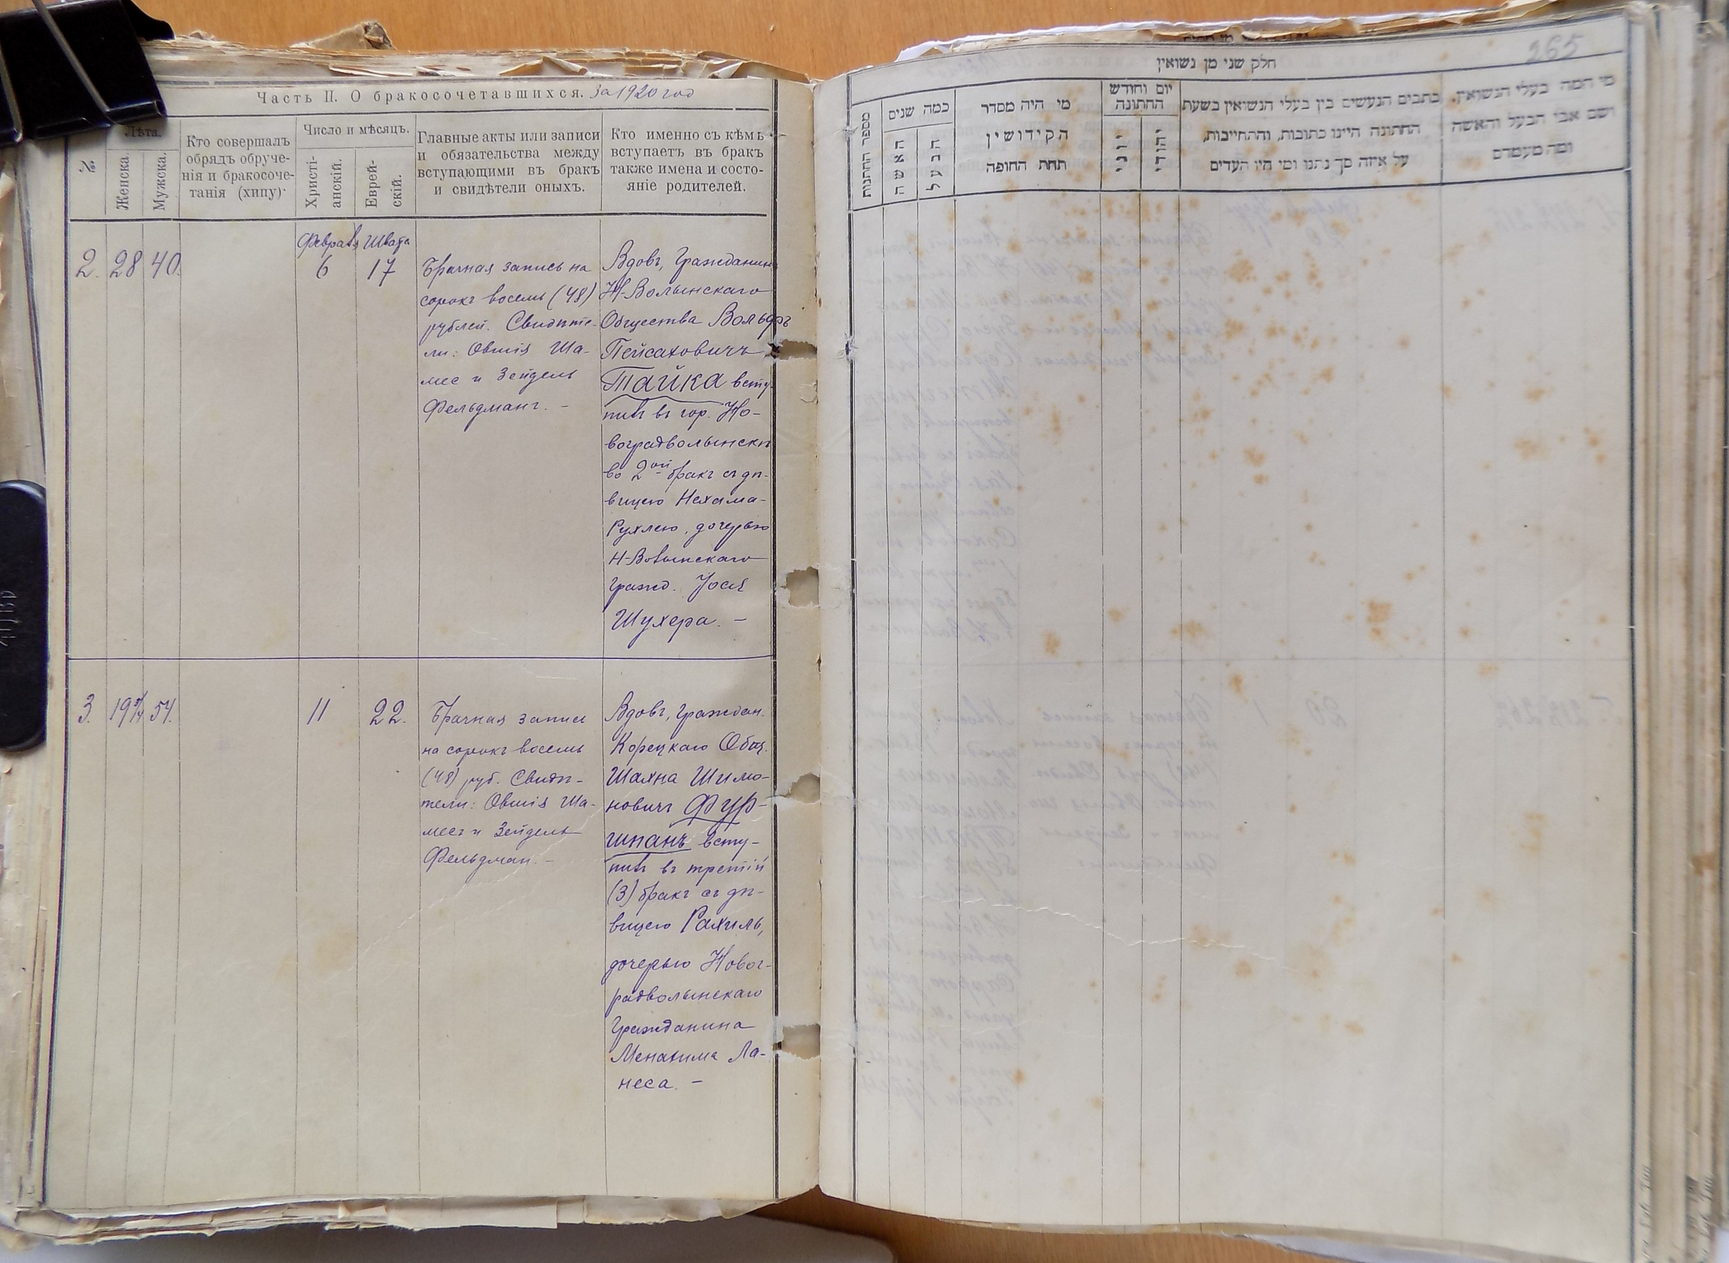 Часть II. О бракосочетавшихся. За 1920 год
№
Лѣта.
Женска.
Мужска.
Кто совершалъ
обрядъ обруче-
нія и бракосоче-
танія (хипу)
Число и мѣсяцъ.
Христі-
анскій.
Еврей-
скій.
Главные акты или записи
и обязательства между
вступающими въ бракъ
и свидѣтели оныхъ.
Кто именно съ кѣмъ
вступаетъ въ бракъ
также имена и состо-
яніе родителей.
2. 28 40.
Февраля Швата
6 17
Брачная запись на
сорокъ восемь (48)
рублей. Свидѣте-
ли: Овшія Ша-
мес и Зейдель
Фельдманъ. –
Вдовъ, Гражданинъ
Н-Волынскаго
Общества Вольфъ
Пейсаховичъ
Тайка всту-
пилъ въ гор. Но-
воградволынскѣ
во 2ой бракъ съ дѣ-
вицею Нехама-
Рухлею, дочерью
Н-Волынскаго
гражд. Іося
Шухера. –
3. 19 54.
11 22.
Брачная запись
на сорокъ восемь
(48) руб. Свидѣ-
тели: Овшія Ша-
месъ и Зейдель
Фельдман. –
Вдовъ, Граждан.
Корецкаго Общ.
Шахна Шимо-
новичъ Фур-
шпанъ всту-
пилъ въ третій
(3) бракъ съ дѣ-
вицею Рахиль,
дочерью Новог-
радволынскаго
Гражданина
Менахима Ла-
неса. –
265
חלק שני מן נשואין
מספר החתונות
כמה שנים
האשה
הבעל
מי היה מסדר
הקידושין
תחת החופה
יום וחודש
החתונה
יוני
יהודי
כתבים הנעשים בין בעלי הנשואין בשעת
החתונה היינו כתובות, והתחייבות,
על איזה סך נתנו ומי היו העדים
מי המה בעלי הנשואין,
ושם אבי הבעל והאשה
ומה מעמדם